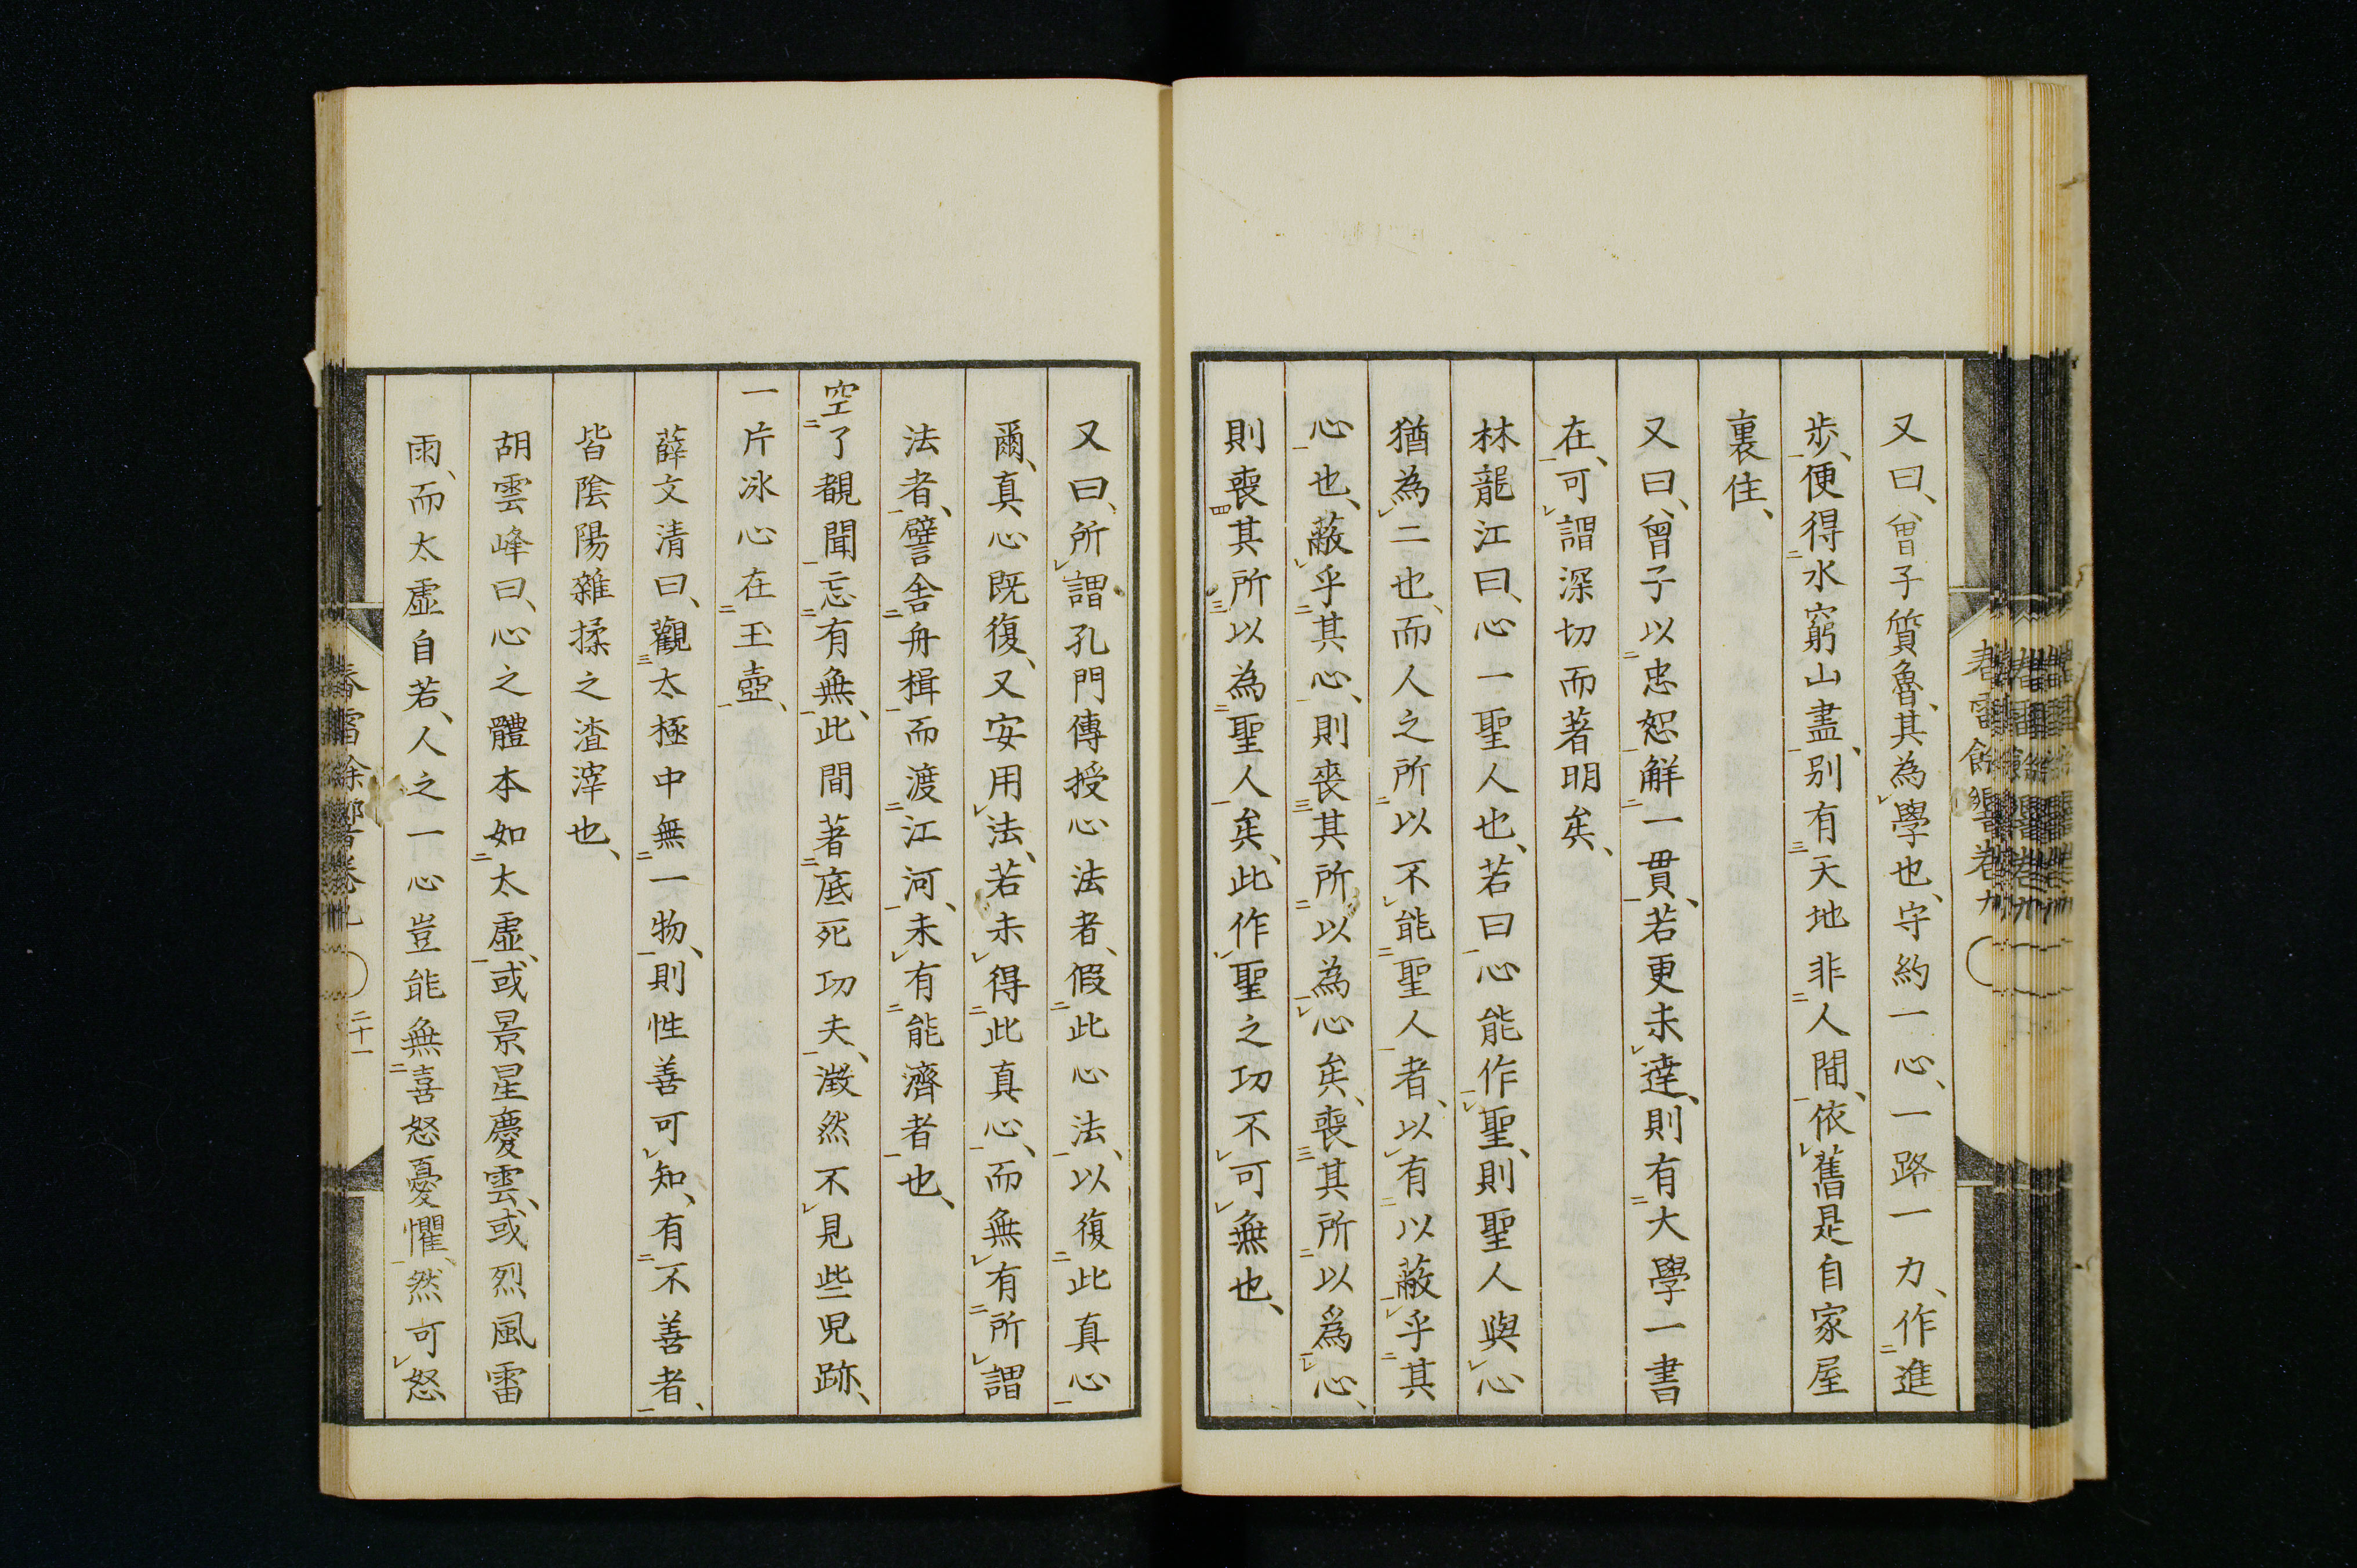 又曰、曾子質魯、其為學也、守約一心、一路一力、作進
歩、便得水窮山盡、別有天地非人間、依舊是自家屋
裏住、
又曰、曾子以忠恕解一貫、若更未達、則有大學一書
在、可謂深切而著明矣、
林龍江曰、心一聖人也、若曰心能作聖、則聖人與心
猶為二也、而人之所以不能聖人者、以有以蔽乎其
心也、蔽乎其心、則喪其所以為心矣、喪其所以爲心、
則喪其所以為聖人矣、此作聖之功不可無也、
又曰、所謂孔門傳授心法者、假此心法、以復此真心
爾、真心既復、又安用法、若未得此真心、而無有所謂
法者、譬舎舟楫而渡江河、未有能濟者也、
空了覩聞忘有無、此間著底死功夫、澂然不見些児跡、
一片冰心在玉壺、
薛文清曰、觀太極中無一物、則性善可知、有不善者、
皆陰陽雜揉之渣滓也、
胡雲峰曰、心之體本如太虛、或景星慶雲、或烈風雷
雨、而太虛自若、人之一心豈能無喜怒憂懼、然可怒
春雷餘響卷九
二十一